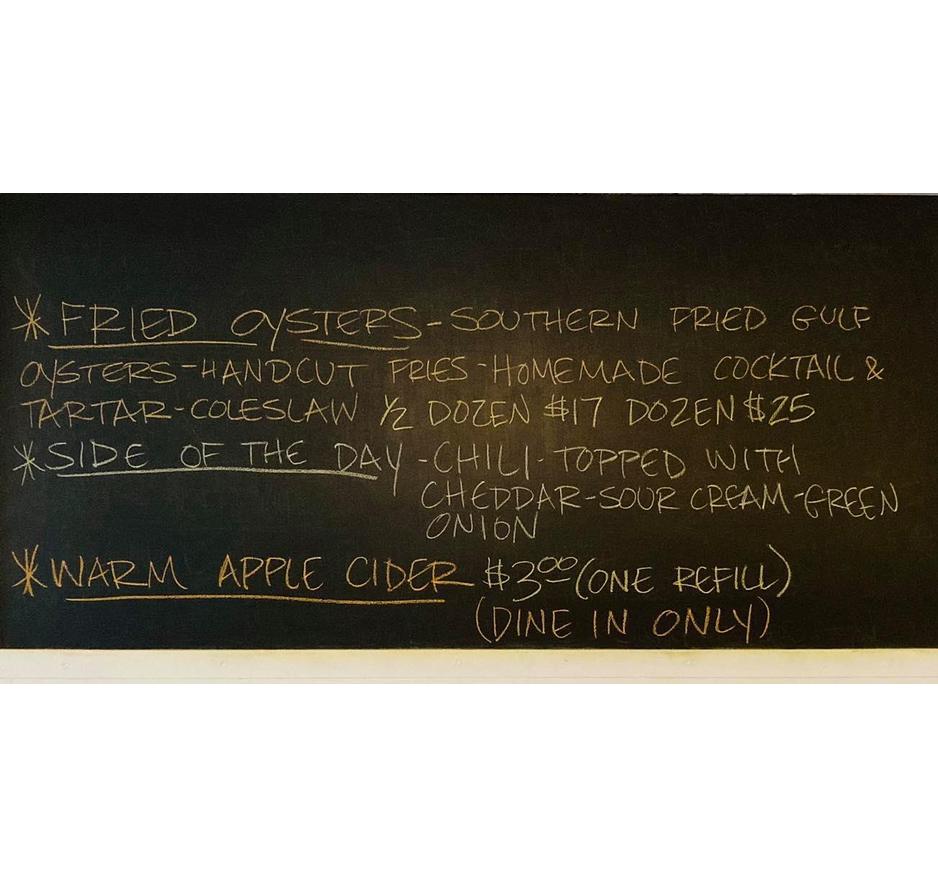 * FRIED OYSTERS - SOUTHERN FRIED GULF
OYSTERS - HANDCUT FRIES - HOMEMADE COCKTAIL &
TARTAR - COLESLAW 1/2 DOZEN $17 DOZEN $25
* SIDE OF THE DAY - CHILI - TOPPED WITH
CHEDDAR - SOUR CREAM - GREEN
ONION
* WARM APPLE CIDER $3.00 (ONE REFILL)
(DINE IN ONLY)